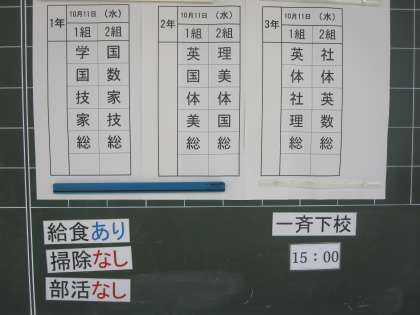 1年 10月11日 (水)
1組 2組
学 国
国 数
技 家
家 技
総 総
2年 10月11日 (水)
1組 2組
英 理
国 美
体 体
美 国
総 総
3年 10月11日 (水)
1組 2組
英 社
体 体
社 英
理 数
総 総
給食あり
掃除なし
部活なし
一斉下校
15:00